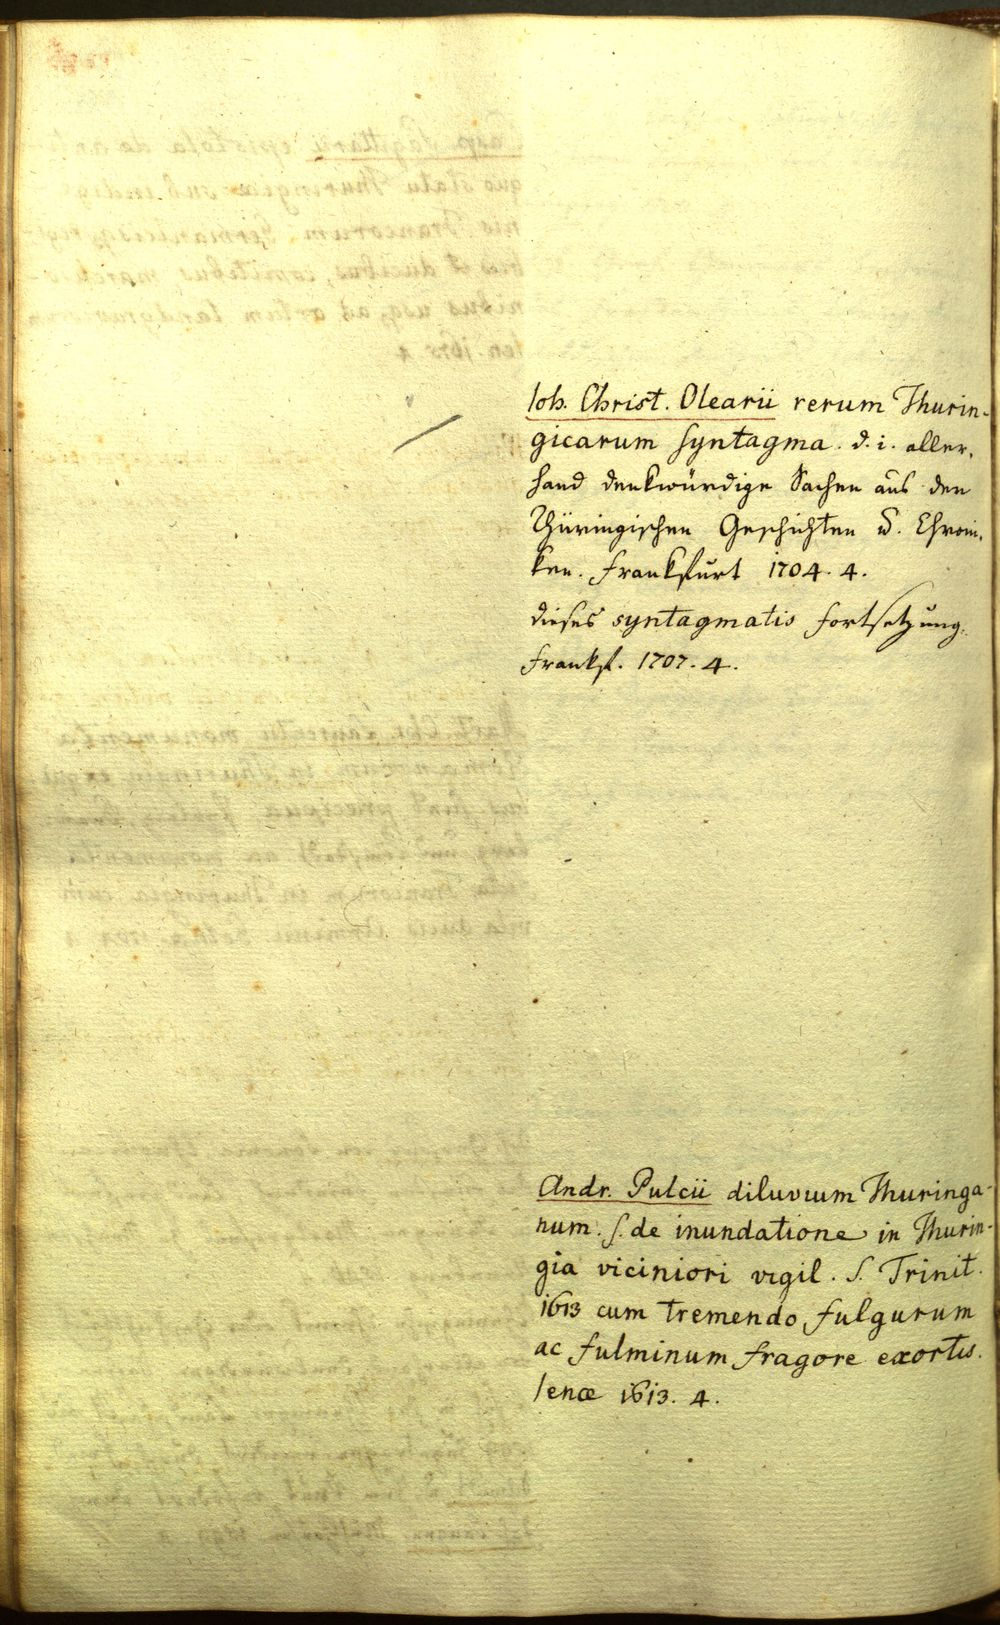 Joh. Christ. Olearii rerum Thurin-
gicarum syntagma. d. i. aller-
hand denkwürdige Sachen aus den
Thüringischen Geschichten u. Chroni-
ken. Frankfurt 1704. 4.
dieses syntagmatis Fortsetzung.
Frankf. 1707. 4.
Andr. Pulcii diluvium Thuringa-
num. s. de inundatione in Thurin-
gia viciniori vigil. S. Trinit.
1613 cum tremendo fulgurum
ac fulminum fragore exortis.
Jenæ 1613. 4.